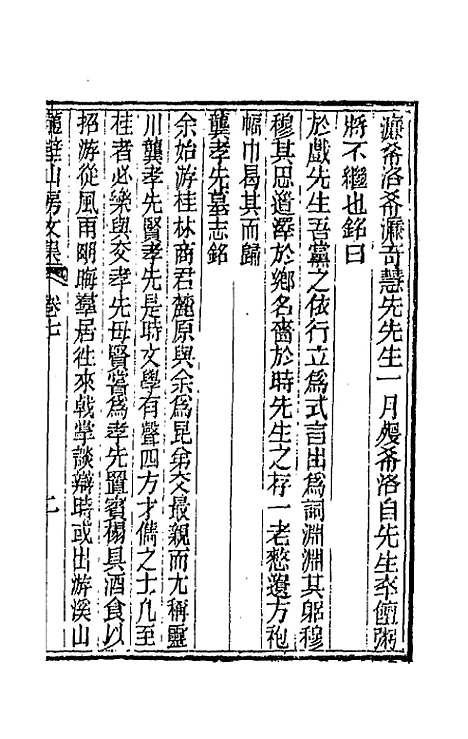 濂希洛希濂奇慧先先生一月殁希洛自先生卒饘粥
將不繼也銘曰
於戲先生吾黨之依行立爲式言出爲詞淵淵其躬穆
穆其思道辭於鄉名嗇於時先生之存一老憖遺方袍
幅巾曷其而歸
龔孝先墓志銘
余始游桂林商君麓原與余爲昆弟交最親而尤稱靈
川龔孝先賢孝先是時文學有聲四方才儁之士凡至
桂者必樂與交孝先母賢嘗爲孝先置賓榻具酒食以
招游從風雨晦羣居往來戟掌談辯時或出游溪山
璧山房文集 卷七 二